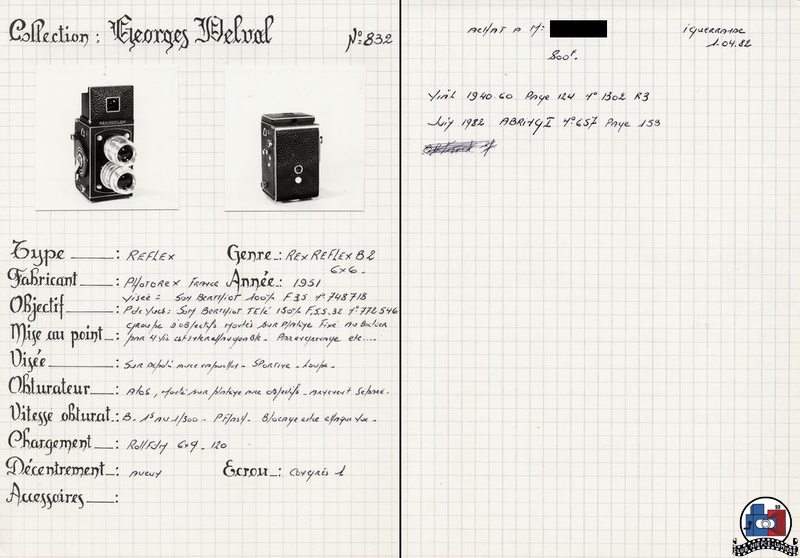 Collection : Georges Delval
N°: 832
REXOREFLEX
Type : REFLEX
Genre : REX REFLEX B2
6x6.
Fabricant : PHOTOREX FRANCE
Année : 1951
Objectif : Visée : SOM BERTHIOT 100% F 35 N° 748718
P de vues : SOM BERTHIOT TELÉ 150% F.5S.32 N° 772546
Groupe D'objectifs montés sur platine Fixe au Boitier
Mise au point : par 4 vis
Visée : SUR Dépoli - SPORTIVE - Loupe.
Obturateur : Atos, monté sur platine avec objectifs - armement séparé.
Vitesse obturat : B. 1S AU 1/300 - P Flash - Blocage entre chaque vue.
Chargement : Rollfilm 6x9 - 120
Décentrement : aucun
Ecrou : Congrès 1
Accessoires :
ACHAT A M:
800F.
IGUERRANDE
1.04.82
Vial 1940.60 Page 124 N° 1302 R3
Juin 1982 ABRING I N° 657 Page 153